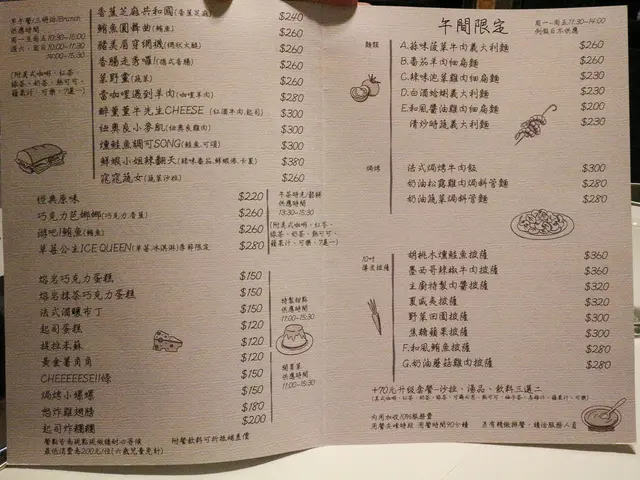 早午餐/三明治/Brunch
供應時間
周一~周五10:30~15:00
週六、週日10:00~11:30
14:00~15:30
(附美式咖啡、紅茶、
綠茶、奶茶、熱可可、
蘋果汁、可樂、7選一)
香蕉芝麻共和國(香蕉芝麻) $240
鮪魚圓舞曲(鮪魚) $260
豬美眉穿網襪(網狀火腿) $260
香腸走秀囉!(德式香腸) $260
菜野豐(蔬菜) $260
當咖哩遇到羊肉(咖哩羊肉) $280
醉薰薰牛先生CHEESE (紅酒牛肉.起司) $300
紐奧良小麥肌(紐奧良雞肉) $300
燻鮭魚綢可SONG(鮭魚.可頌) $300
鮮蝦小姐辣翻天(辣味番茄.鮮蝦捲.卡夏) $380
窕窕蔬女(蔬菜沙拉) $260
經典原味 $220
巧克力芭娜娜(巧克力香蕉) $260
游吧!鮪魚(鮪魚) $260
草莓公主ICE QUEEN(草莓冰淇淋)季節限定 $280
午茶時光/鬆餅
供應時間
13:30~15:30
(附美式咖啡、紅茶、
綠茶、奶茶、熱可可、
蘋果汁、可樂、7選一)
熔岩巧克力蛋糕 $150
熔岩抹茶巧克力蛋糕 $150
法式湯釀布丁 $150
起司蛋糕 $120
提拉米蘇 $120
特製甜點
供應時間
11:00~15:30
黃金薯角角 $120
CHEEEEESE!!條 $150
焗烤小螺螺 $150
炸炸雞翅膀 $180
起司炸糰糰 $200
開胃菜
供應時間
11:00~15:30
餐點皆為現點現做請耐心等候
附餐飲料可折抵補差價
最低消費為200元/位(六歲兒童免計)
午間限定
周一~周五11:30~14:00
例假日不供應
麵類
A.蒜味菠菜牛肉義大利麵 $260
B.番茄羊肉細扁麵 $260
C.辣味泡菜雞肉細扁麵 $230
D.白酒蛤蜊義大利麵 $230
E.和風醬油雞肉細扁麵 $200
清炒時蔬義大利麵 $230
焗烤
法式焗烤牛肉飯 $300
奶油松露雞肉焗斜管麵 $280
奶油蔬菜焗斜管麵 $280
10吋
薄皮披薩
胡桃木燻鮭魚披薩 $360
墨西哥辣椒牛肉披薩 $360
主廚特製肉醬披薩 $320
夏威夷披薩 $320
野菜田園披薩 $300
焦糖蘋果披薩 $300
F.和風鮪魚披薩 $280
G.奶油蘑菇雞肉披薩 $280
+70元升級套餐-沙拉、湯品、飲料三選二
內用加收10%服務費
用餐尖峰時段 用餐時間90分鐘